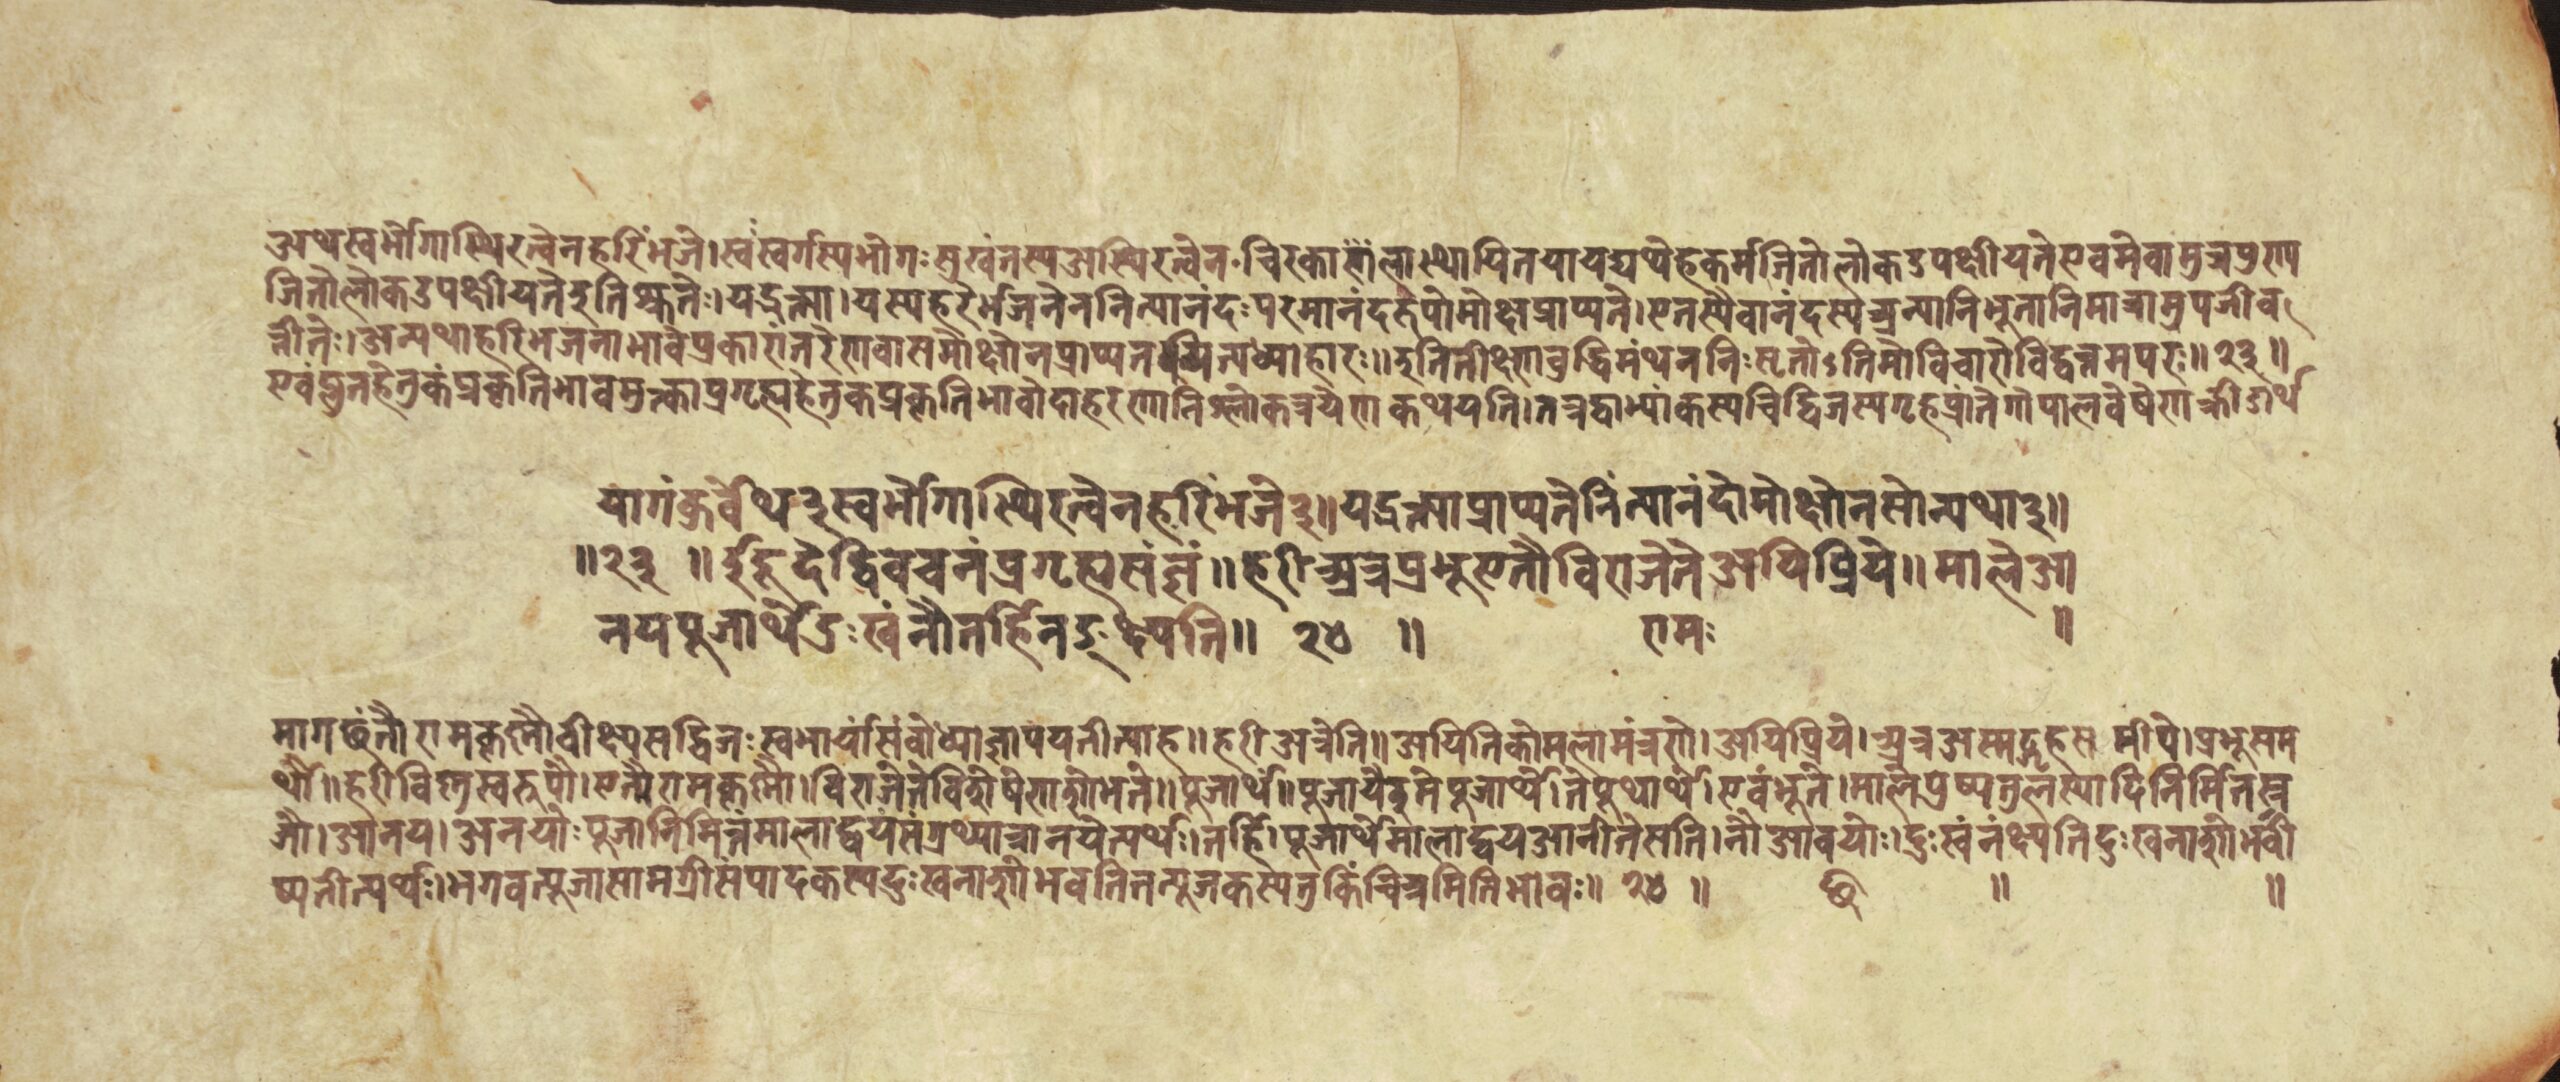 अथस्वर्भोगास्थिरत्वेनहरिंभजे।स्वःस्वर्गस्यभोगःसुखंतस्यअस्थिरत्वेन॰चिरकालास्थायितयायद्यथेहकर्मजितोलोकउपक्षीयतेएवमेवामुत्रपुण्य
जितोलोकउपक्षीयतेइतिश्रुतेः।यद्भक्त्या।यस्यहरेर्भजनेननित्यानंदःपरमानंदरूपोमोक्षःप्राप्यते।एतस्यैवानंदस्यअन्यानिभूतानिमात्रामुपजीव
न्तीतेः।अन्यथाहरिभजनाभावेप्रकारांतरेणवासमोक्षोनप्राप्यतइत्यध्याहारः॥इतितीक्ष्णबुद्धिमंथननिःसृतोऽतिमोविचारोविद्वत्तमपरः॥२३॥
एवंप्लुतहेतुकंप्रकृतिभावमुक्त्वाप्रगृह्यहेतुकप्रकृतिभावोदाहरणानिश्लोकत्रयेणकथयति।तत्रद्वाभ्यांकस्यचिद्विजस्यगृहप्रांतेगोपालवेषेणक्रीडार्थ
यागंकुर्वेथ३स्वर्भोगास्थिरत्वेनहरिंभजे३॥यद्भक्त्याप्राप्यतेनित्यानंदोमोक्षोनसोन्यथा३॥
॥२३॥ईदूदेद्विवचनंप्रगृह्यसंज्ञं॥हरीअत्रप्रभूएतौविराजेतेअयिप्रिये॥मालेआ
नयपूजार्थेदुःखंनौतर्हिनङ्क्ष्यति॥२४॥ रामः ॥
मागछंतौरामकृष्णौवीक्ष्यसद्विजःस्वभार्यांसंबोध्याज्ञापयतीत्याह॥हरीअत्रेति॥अयितिकोमलामंत्रणे।अयिप्रिये।अत्रअस्मद्गृहसमीपे।प्रभूसम
र्थौ॥हरीविष्णुस्वरूपौ।एतौरामकृष्णौ।विराजेतेविशेषेणशोभेते॥पूजार्थे॥पूजायैइमेपूजार्थे।तेपूथार्थे।एवंभूते।मालेपुष्पतुलस्यादिनिर्मितस्र
जौ।आनय।अनयोःपूजानिमित्तंमालाद्वयंसंग्रथ्यात्रानयेत्यर्थः।तर्हि।पूजार्थेमालाद्वयआनीतेसति।नौआवयोः।दुःखंनंक्ष्यतिदुःखनाशोभवि
ष्यतीत्यर्थः।भगवत्पूजासामग्रीसंपादकस्यदुःखनाशोभवतितत्पूजकस्यतुकिंचित्रमितिभावः॥२४॥ छ ॥ ॥